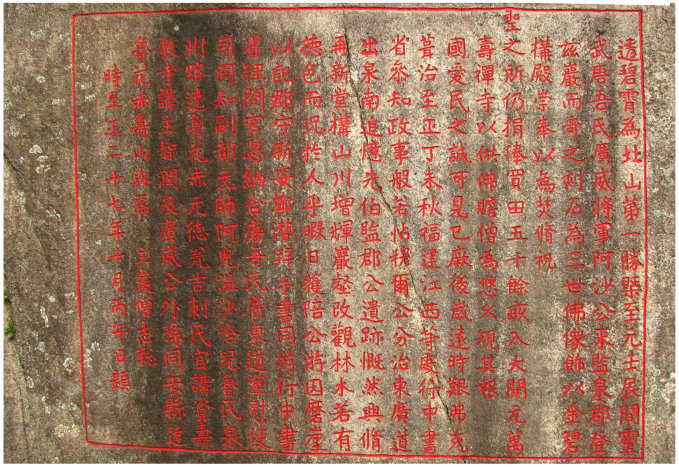 透碧霄為北山第一勝槩至元壬辰間靈
武唐吾氏廣威將軍阿沙公來監泉郡登
茲巖而奇之刻石為三世佛像飾以金碧
構殿崇奉以為焚脩祝
聖之所仍捐俸買田五十餘畝入大開元萬
壽禪寺以供佛贍僧為悠久規其報
國愛民之誠可見已厥後歲遠時艱弗克
葺治至正丁未秋福建江西等處行中書
省參知政事般若帖穆爾公分治東廣道
出泉南追憶先伯監郡公遺跡慨然興脩
再新堂構山川增輝巖壑改觀林木若有
德色而況於人乎暇日獲陪公游因磨崖
以記郡守新安鄭潛拜手書同游行中書
省理問官忽納台唐吾氏廣東道宣慰使
司同知副都元帥阿兒溫沙哈兒魯氏泉
州路達魯花赤元德瓮吉剌氏官講資壽
教寺講主智潤及廣威公外孫同安縣達
魯花赤壽山與焉 主巖僧志聰
時至正二十七年十月丙午日題